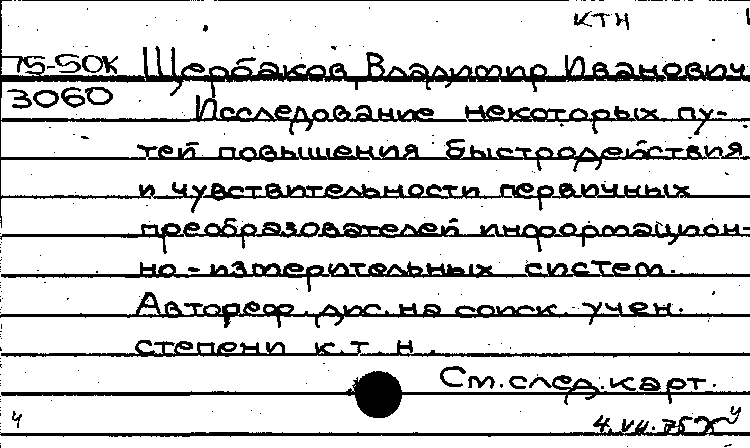 ктн
75-50К Щербаков Владимир Иванович
3060 Исследование некоторых пу-
тей повышения быстродействия
и чувствительности первичных
преобразователей информацион-
но-измерительных систем.
Автореф. дис. на соиск. учен.
степени к.т.н.
См. след. карт.
ч
4.VII.75